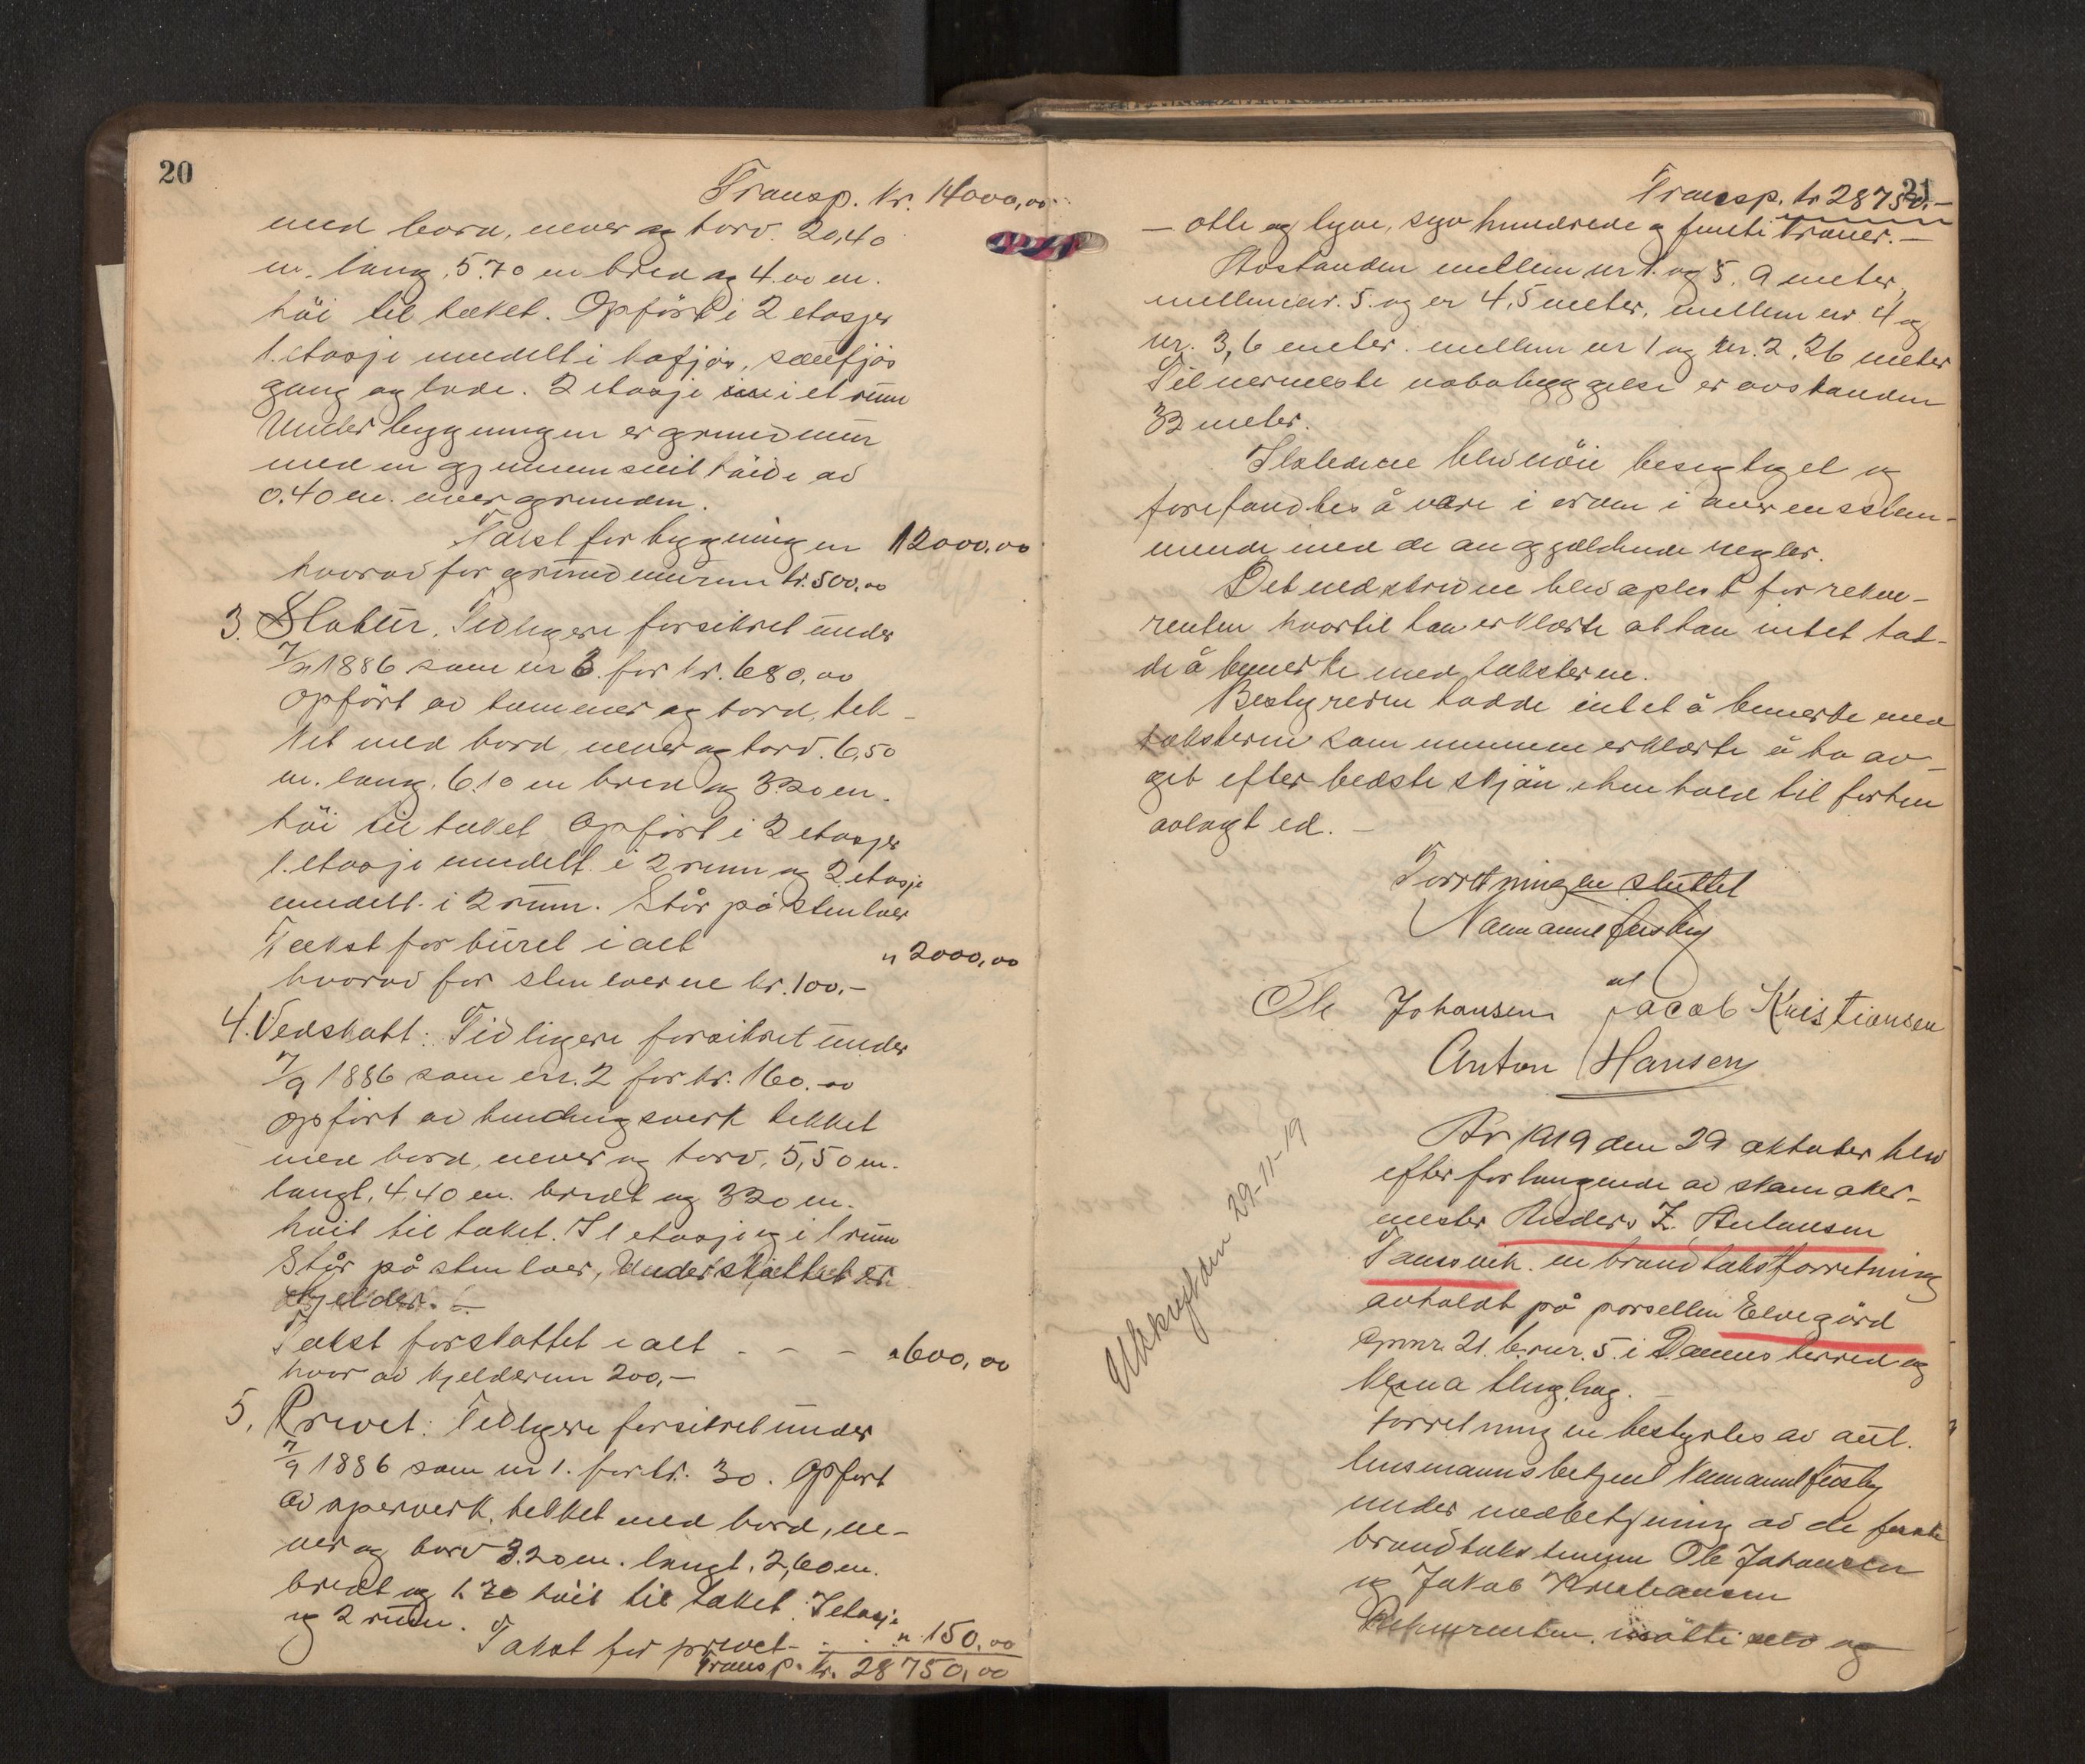 20
Transp. kr. 14000,00
med bord, never og torv. 20,40
m. lang, 5.70 m bred og 4.00 m.
høi til taket. Opført i 2 etasjer
1. etasje inndelt i kufjøs, sauefjøs
gang og lade. 2 etasje i et rum
Under bygningen er grundmur
med en gjennemsnit høide av
0.40 m. over grunden.
Takst for bygningen 12000,00
hvorav for grundmuren kr. 500,00
3. Stabur. Tidligere forsikret under
7/9 1886 som nr 3. for kr. 680,00
Opført av tømmer og bord, tek-
ket med bord, never og torv. 6,50
m. lang, 6.10 m bred og 3.20 m.
høi til taket Opført i 2 etasjer
1. etasje inndelt i 2 rum og 2 etasje
inndelt i 2 rum. Står på stenlaer
Takst for buret i alt " 2000,00
hvorav for stenlaerne kr. 100.-
4. Vedskott: Tidligere forsikret under
7/9 1886 som nr. 2 for kr. 160.00
opført av bindingsverk tekket
med bord, never og torv, 5,50 m.
langt, 4.40 m. bredt og 320 m.
høit til taket. I 1 etasje og i 1 rum
Står på stenlaer, Under skottet er
kjelder. -
Takst for skottet i alt - - - " 600,00
hvor av kjelderen 200,-
5. Privet: Tidligere forsikret under
7/9 1886 som nr 1. for kr. 30. Opført
av sperverk, tekket med bord, ne-
ver og torv 3.20 m. langt, 2,60 m.
bredt og 1.70 høit til taket. I etasje
og 2 rum.
Takst for privet - . . " 150,00
Transp. kr. 28750,00
21
Transp. kr 28750.-
- otte og tyve, syv hundrede og femti kroner. -
Avstanden mellem nr 1. og 5, 9 meter,
mellem nr. 5. og er 4,5 meter, mellem nr 4 og
nr. 3, 6 meter. mellem nr 1 og nr. 2, 26 meter
Til nermeste nabobyggelse er avstanden
32 meter.
Ilstedene blev nøie besigtiget og
forefandtes å være i orden i overensstem-
mende med de anggjældende regler.
Det nedskrevne blev oplest for rekvi-
renten hvortil han erklærte at han intet had-
de å bemerke med taksterne.
Bestyreren hadde intet å bemerke med
taksterne som mennene erklærte å ha av-
get efter bedste skjøn i henhold til forhen
avlagt ed. -
Forretningen sluttet
Ole Johansen Jacob Kristiansen
Anton Hansen
Utskrift den 29-11-19
År 1919 den 29 oktober blev
efter forlangende av skomaker-
mester Anders Z. Antonsen
en brandtakstforretning
avholdt på parsellen Elvegård
gnr. 21. b.nr. 5. i herred og
tinglag. -
Forretningen bestyrtes av aut.
lensmannsbetjent
under medbetjening av de faste
brandtakstmenn Ole Johansen
og Jakob Kristiansen
Rekvirenten møtte selv og